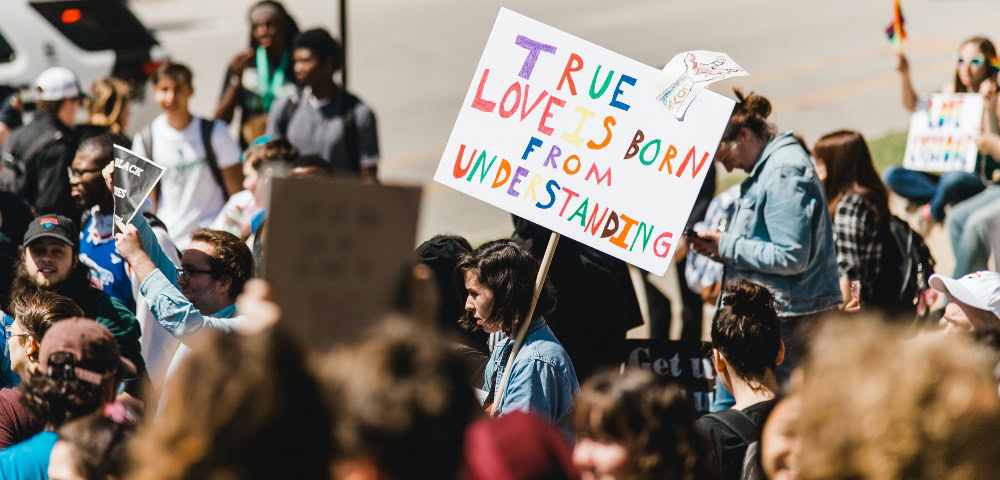 TRUE
LOVE IS BORN
FROM
UNDERSTANDING
BLACK
Get u